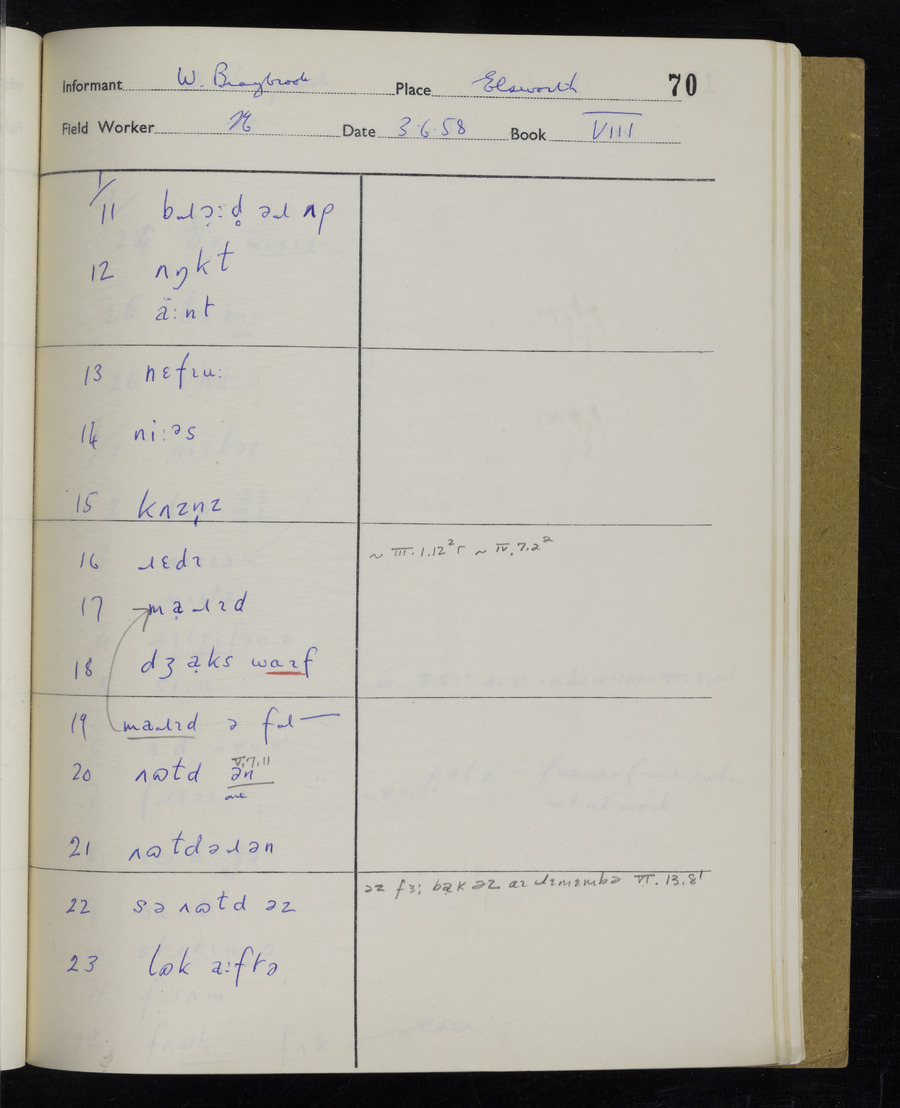 Informant W. Braybrook Place Elsworth 70
Field Worker Date 3.6.58 Book VIII
1/11 bɹɔ̣:d̥ əɹ ʌp
12 ʌŋkt
ä:nt
13 nɛfɪu:
14 ni:əs
15 kʌzn̩z
16 ɹɛdɪ
17 mạɹɪd
18 dʒạks waɪf
19 maɹɪd ə fəɹ —
20 ʌɷtd ən V.7.11
one
21 ʌɷtdəɹən
22 sə ʌɷtd əz
23 lɷk a:ftə
~ III.1.12² r ~ IV.7.2²
əz fɜ: bạk əz aɪ ɹɪmɛmbə VI.13.8¹